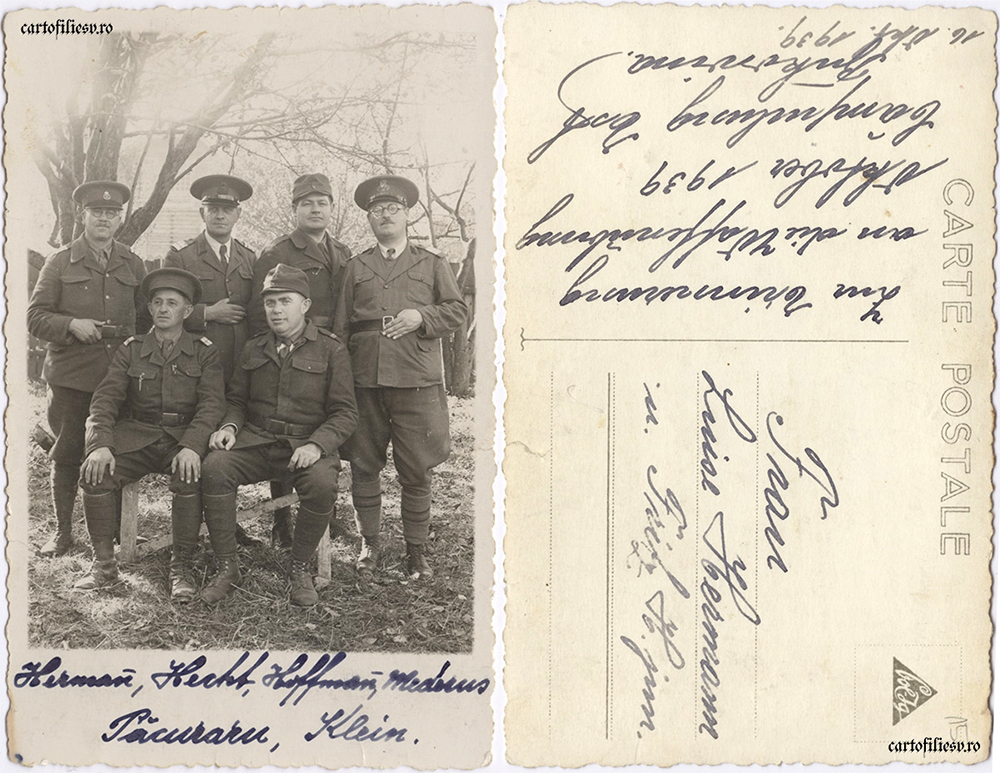 cartofiliesv.ro
Hermañ, Hecht, Hoffmañ, Mederus
Păcuraru, Klein.
Zur Erinnerung
an die Waffenübung
Oktober 1939
Câmpulung
Bukovina.
16. Okt. 1939.
CARTE POSTALE
Frau
Luise Hermann
u. Fritz H. jun.
cartofiliesv.ro